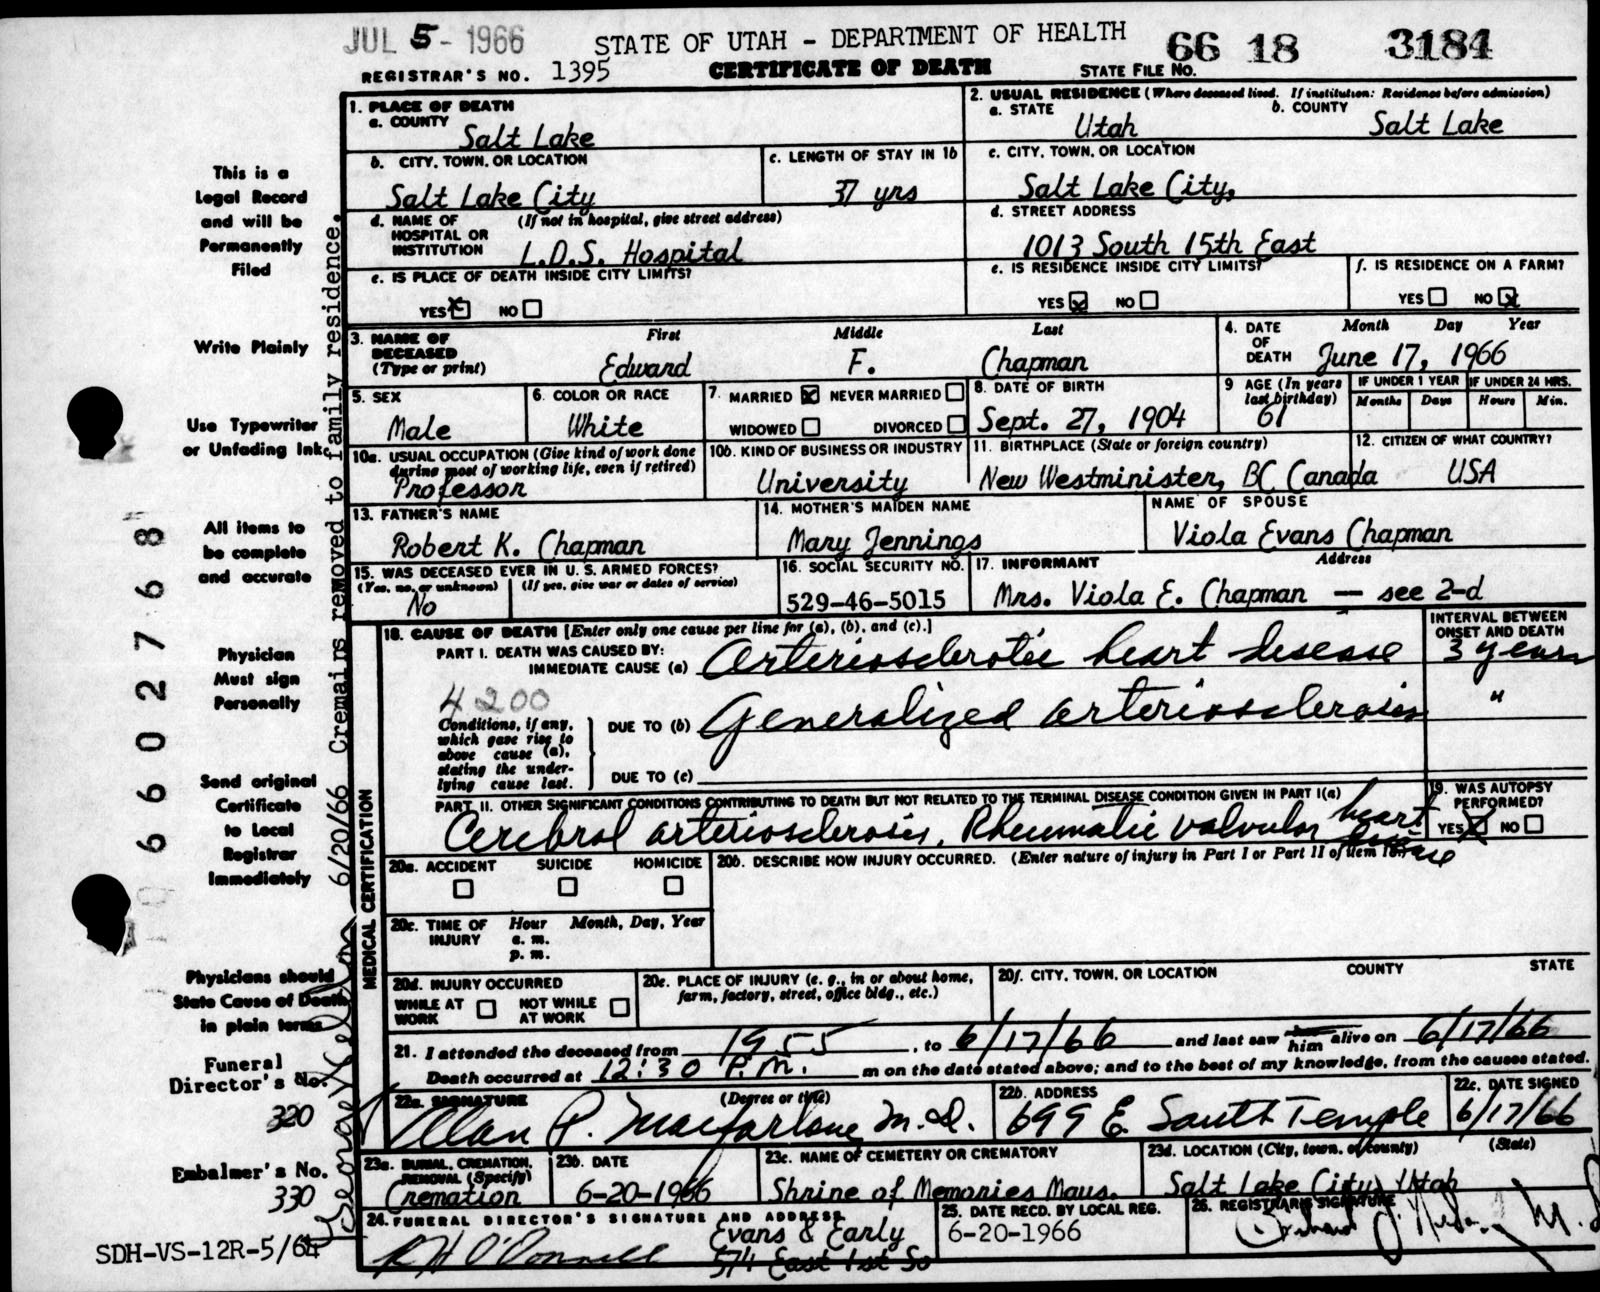 JUL 5 - 1966
STATE OF UTAH - DEPARTMENT OF HEALTH
66 18 3184
REGISTRAR'S NO. 1395
CERTIFICATE OF DEATH
STATE FILE NO.
1. PLACE OF DEATH
a. COUNTY
Salt Lake
2. USUAL RESIDENCE (Where deceased lived. If institution: Residence before admission)
a. STATE
Utah
b. COUNTY
Salt Lake
b. CITY, TOWN, OR LOCATION
Salt Lake City
c. LENGTH OF STAY IN 1b
37 yrs
c. CITY, TOWN, OR LOCATION
Salt Lake City,
d. NAME OF HOSPITAL OR INSTITUTION
(If not in hospital, give street address)
L.D.S. Hospital
d. STREET ADDRESS
1013 South 15th East
e. IS PLACE OF DEATH INSIDE CITY LIMITS?
YES NO
e. IS RESIDENCE INSIDE CITY LIMITS?
YES NO
f. IS RESIDENCE ON A FARM?
YES NO
3. NAME OF DECEASED
(Type or print)
First Middle Last
Edward F. Chapman
4. DATE OF DEATH
Month Day Year
June 17, 1966
5. SEX
Male
6. COLOR OR RACE
White
7. MARRIED NEVER MARRIED
WIDOWED DIVORCED
8. DATE OF BIRTH
Sept. 27, 1904
9 AGE (In years last birthday)
61
IF UNDER 1 YEAR
Months Days
IF UNDER 24 HRS.
Hours Min.
10a. USUAL OCCUPATION (Give kind of work done during most of working life, even if retired)
Professor
10b. KIND OF BUSINESS OR INDUSTRY
University
11. BIRTHPLACE (State or foreign country)
New Westminister, BC Canada
12. CITIZEN OF WHAT COUNTRY?
USA
13. FATHER'S NAME
Robert K. Chapman
14. MOTHER'S MAIDEN NAME
Mary Jennings
NAME OF SPOUSE
Viola Evans Chapman
15. WAS DECEASED EVER IN U. S. ARMED FORCES?
(Yes, no, or unknown) (If yes, give war or dates of service)
No
16. SOCIAL SECURITY NO.
529-46-5015
17. INFORMANT Address
Mrs. Viola E. Chapman — see 2-d
18. CAUSE OF DEATH [Enter only one cause per line for (a), (b), and (c).]
INTERVAL BETWEEN ONSET AND DEATH
PART I. DEATH WAS CAUSED BY:
IMMEDIATE CAUSE (a) Arteriosclerotic heart disease
3 years
4200
Conditions, if any, which gave rise to above cause (a), stating the underlying cause last.
DUE TO (b) Generalized arteriosclerosis
"
DUE TO (c)
PART II. OTHER SIGNIFICANT CONDITIONS CONTRIBUTING TO DEATH BUT NOT RELATED TO THE TERMINAL DISEASE CONDITION GIVEN IN PART I(a)
Cerebral arteriosclerosis, Rheumatic valvular heart disease
19. WAS AUTOPSY PERFORMED?
YES NO
MEDICAL CERTIFICATION
20a. ACCIDENT SUICIDE HOMICIDE
20b. DESCRIBE HOW INJURY OCCURRED. (Enter nature of injury in Part I or Part II of item 18.)
20c. TIME OF INJURY
Hour Month, Day, Year
a. m.
p. m.
20d. INJURY OCCURRED
WHILE AT WORK NOT WHILE AT WORK
20e. PLACE OF INJURY (e. g., in or about home, farm, factory, street, office bldg., etc.)
20f. CITY, TOWN, OR LOCATION COUNTY STATE
21. I attended the deceased from 1955, to 6/17/66 and last saw her him alive on 6/17/66
Death occurred at 12:30 P.M. m on the date stated above; and to the best of my knowledge, from the causes stated.
22a. SIGNATURE (Degree or title)
Alan P. Macfarlane M.D.
22b. ADDRESS
699 E. South Temple
22c. DATE SIGNED
6/17/66
23a. BURIAL, CREMATION, REMOVAL (Specify)
Cremation
23b. DATE
6-20-1966
23c. NAME OF CEMETERY OR CREMATORY
Shrine of Memories Maus.
23d. LOCATION (City, town, or county) (State)
Salt Lake City, Utah
24. FUNERAL DIRECTOR'S SIGNATURE AND ADDRESS
R H O'Donnell
Evans & Early
574 East 1st So
25. DATE RECD. BY LOCAL REG.
6-20-1966
26. REGISTRAR'S SIGNATURE
This is a
Legal Record
and will be
Permanently
Filed
Write Plainly
Use Typewriter
or Unfading Ink
All items to
be complete
and accurate
Physician
Must sign
Personally
Send original
Certificate
to Local
Registrar
Immediately
Physicians should
State Cause of Death
in plain terms
Funeral
Director's No.
320
Embalmer's No.
330
SDH-VS-12R-5/64
6602768
6/20/66 Cremains removed to family residence.